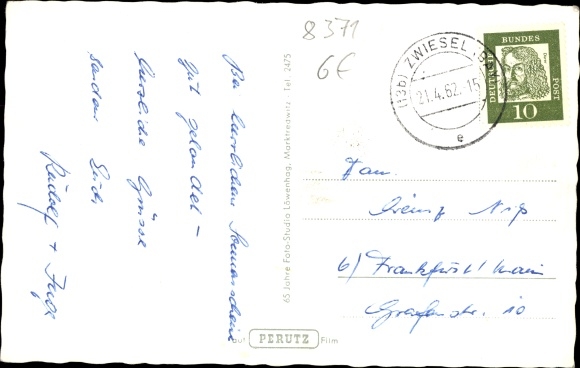 8371
6€
Bei herrlichem Sonnenschein
gut gelandet –
herzliche Grüsse
senden Euch
Rudolf + Inge
65 Jahre Foto-Studio Löwenhag, Marktredwitz, Tel. 2475
auf PERUTZ Film
(13b) ZWIESEL
21.4.62.-15
e
DEUTSCHE
BUNDES
POST
10
Fam.
6) Frankfurt/Main